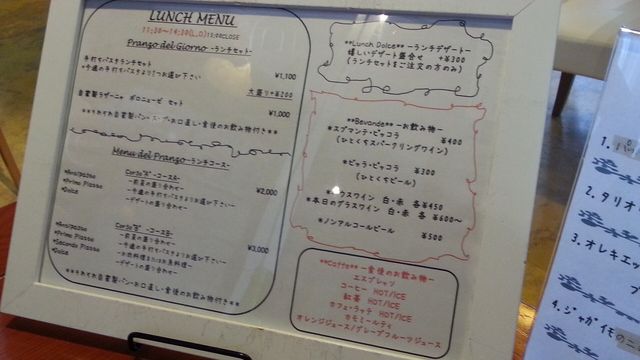 LUNCH MENU
11:30～14:30(L.O)15:00CLOSE
Pranzo del Giorno -ランチセット-
手打ちパスタランチセット
*今週の手打ちパスタより1つお選び下さい ¥1,100
大盛り+¥200
自家製ラザーニャ ボロニェーゼ セット ¥1,000
Menu del Pranzo -ランチコース-
Corso"A" -コースA-
*Antipasto -前菜の盛り合わせ-
*Primo Piatto ¥2,000
*Dolce -デザートの盛り合わせ-
Corso"B" -コースB-
*Antipasto -前菜の盛り合わせ-
*Primo Piatto -今週の手打ちパスタよりお選び下さい-
*Secondo Piatto -お肉料理またはお魚料理- ¥3,000
*Dolce -デザートの盛り合わせ-
**それぞれ自家製パン・お口直し・食後のお飲み物付き**
**Lunch Dolce** -ランチデザート-
嬉しいデザート盛合せ +¥300
(ランチセットをご注文の方のみ)
**Bevande** -お飲み物-
*スプマンテ・ピッコラ ¥400
(ひとくちスパークリングワイン)
*ビッラ・ピッコラ ¥300
(ひとくちビール)
ラスワイン 白・赤 各¥450
*本日のグラスワイン 白・赤 各¥600～
*ノンアルコールビール ¥500
**Caffe** -食後のお飲み物-
エスプレッソ
コーヒー HOT/ICE
紅茶 HOT/ICE
カフェ・ラッテ HOT/ICE
カモミールティ
オレンジジュース/グレープフルーツジュース
1.
2. タリオ
3. オレキエッ
4. ジャガイモのニ